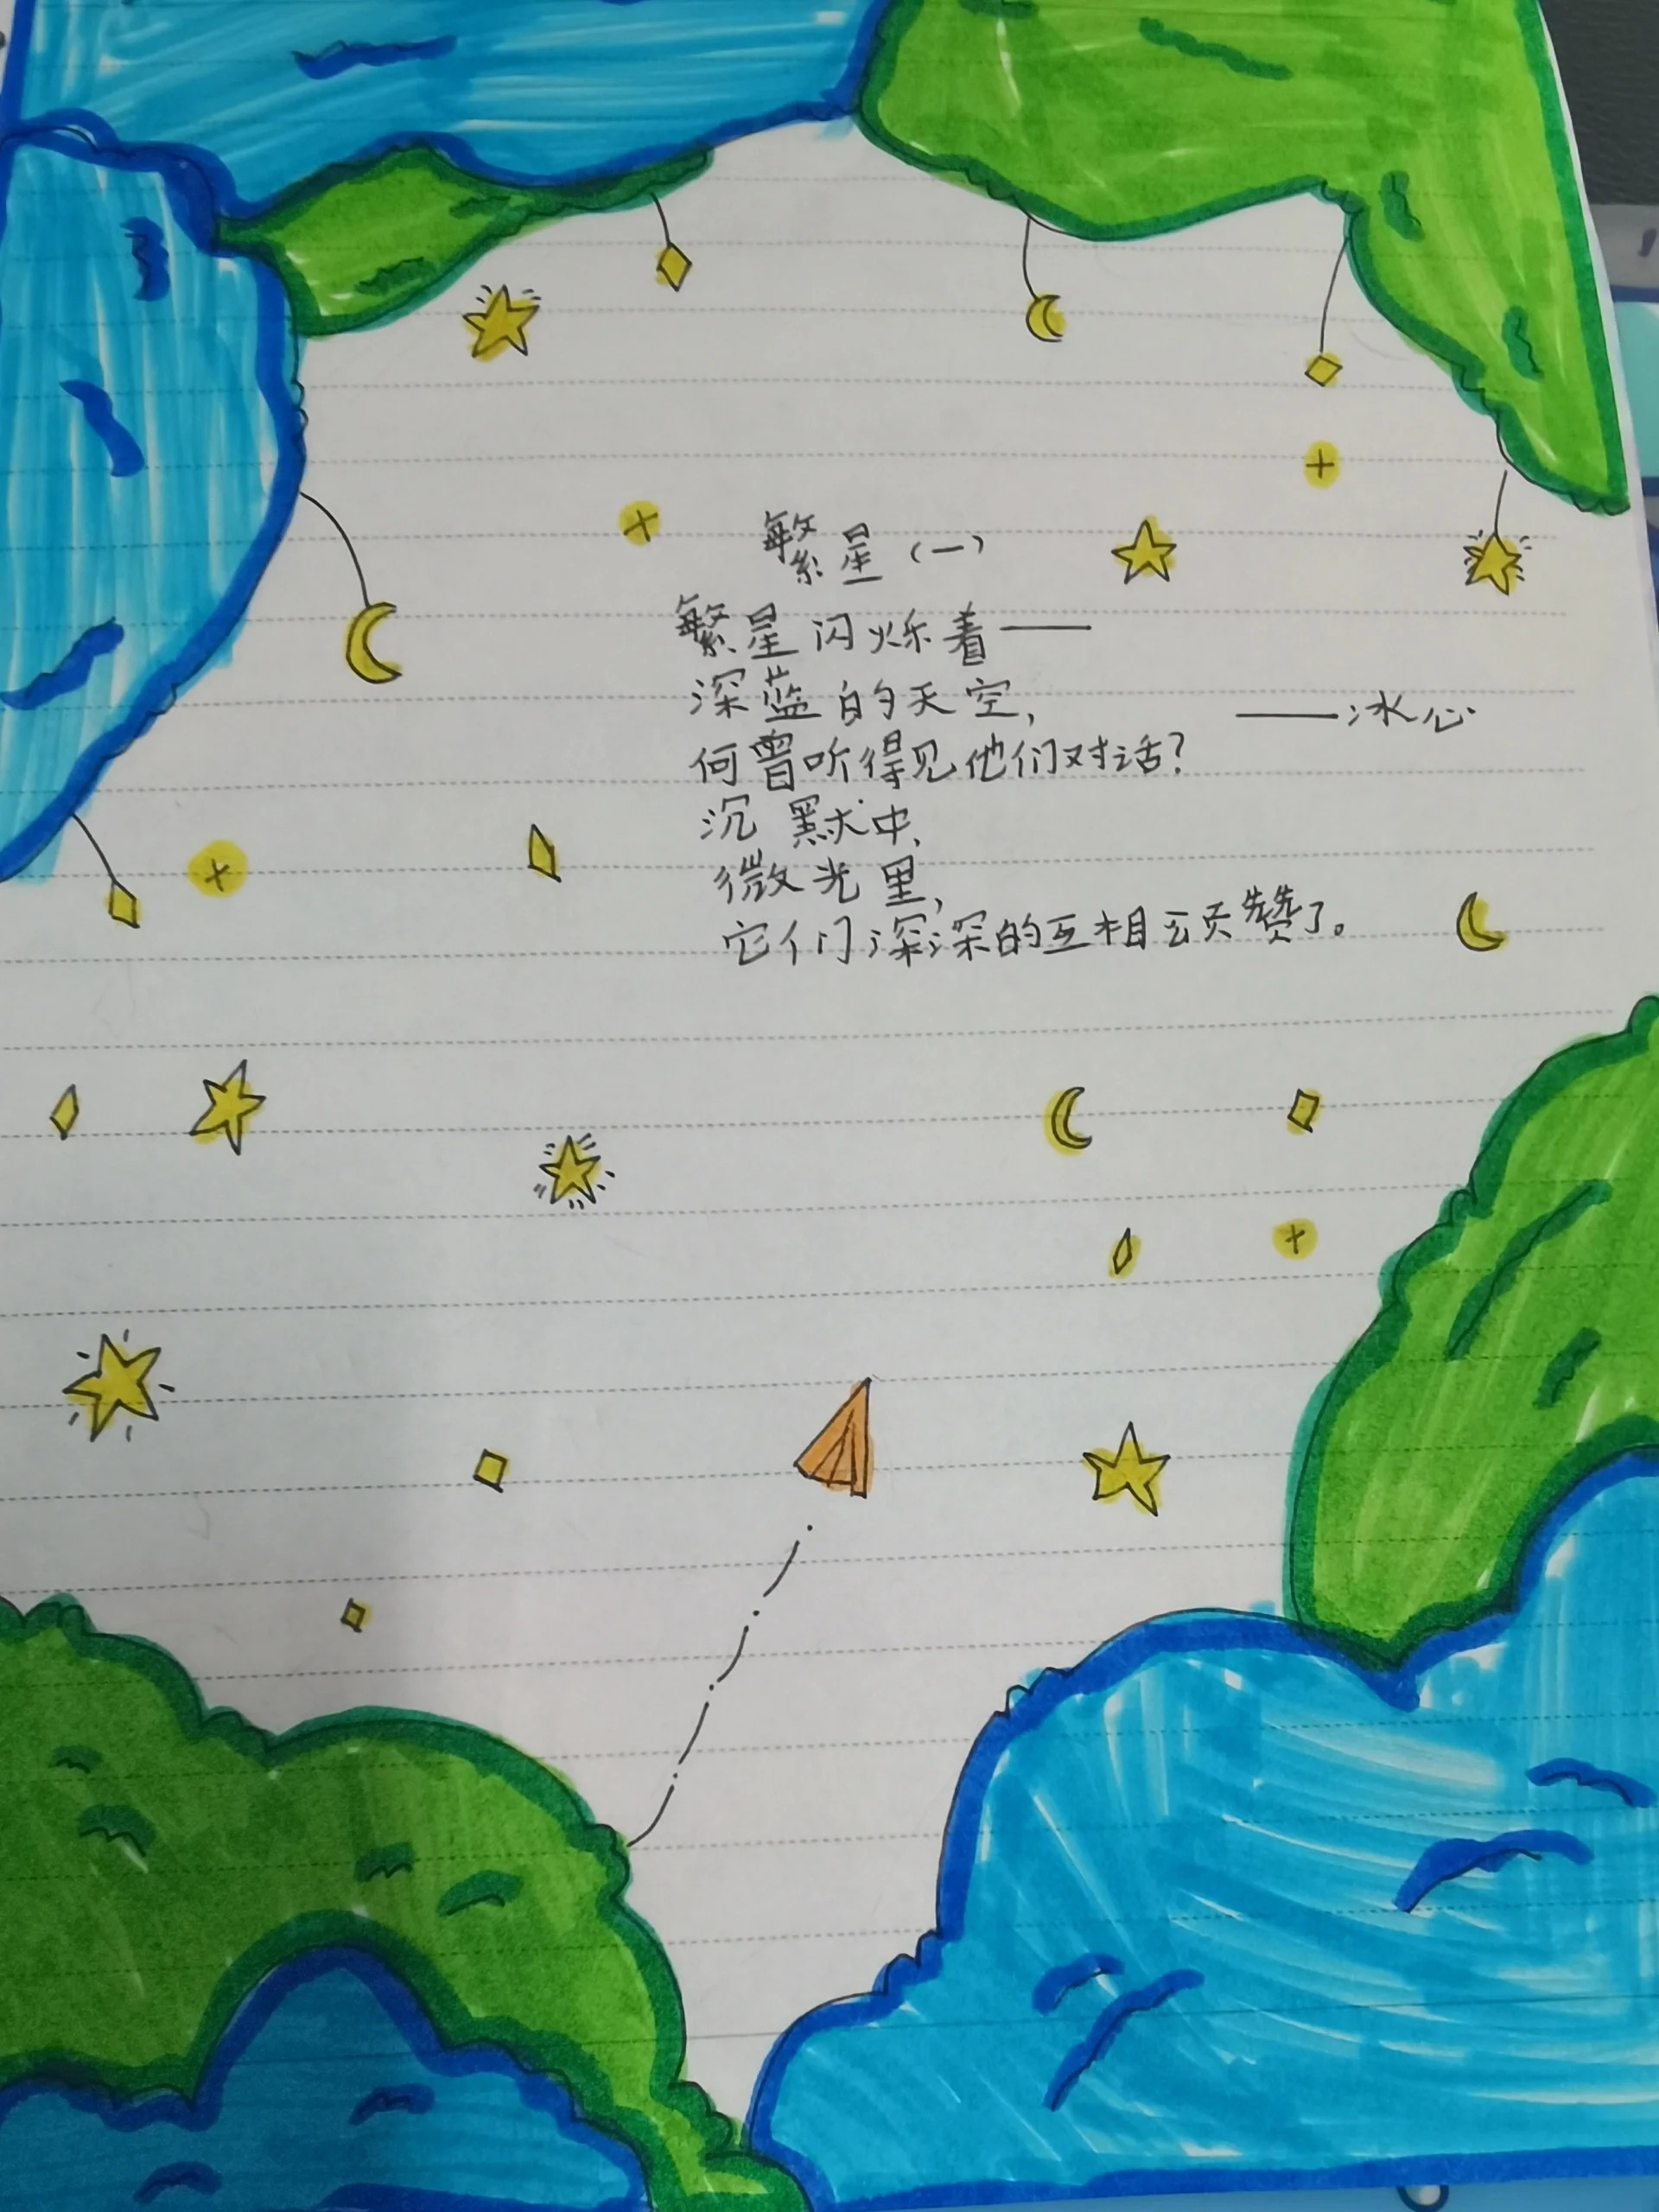 繁星（一）
繁星闪烁着——
深蓝的天空，
——冰心
何曾听得见他们对话？
沉默中，
微光里，
它们深深的互相颂赞了。